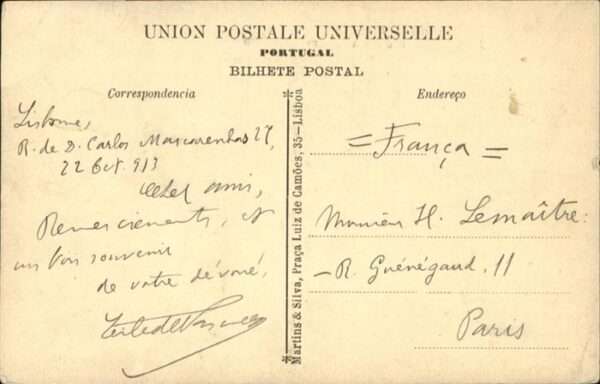 UNION POSTALE UNIVERSELLE
PORTUGAL
BILHETE POSTAL
Correspondencia
Lisbonne,
R. de D. Carlos Mascarenhas 27,
22 Oct. 913
ami,
Remerciements, et
un bon souvenir
de votre dévoué,
Martins & Silva, Praça Luiz de Camões, 35—Lisboa
Endereço
= França =
Monsieur H. Lemaître:
— R. Guénégaud, 11
Paris